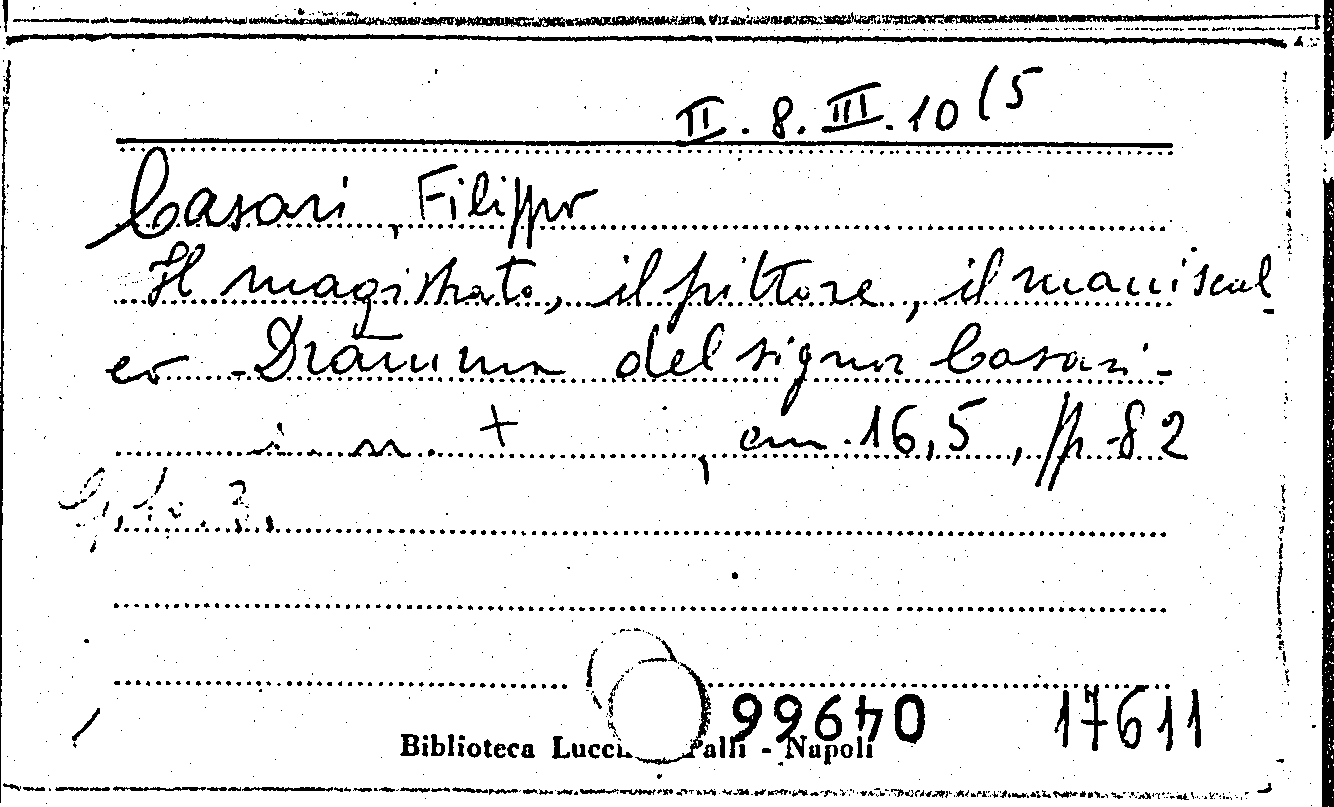 II. 8. III. 10 (5
Casari, Filippo
Il magistrato, il pittore, il maniscal-
co - Dramma del signor Casari -
i. n. +, cm. 16,5, pp. 82
04966 17611
Biblioteca Lucch Palli - Napoli